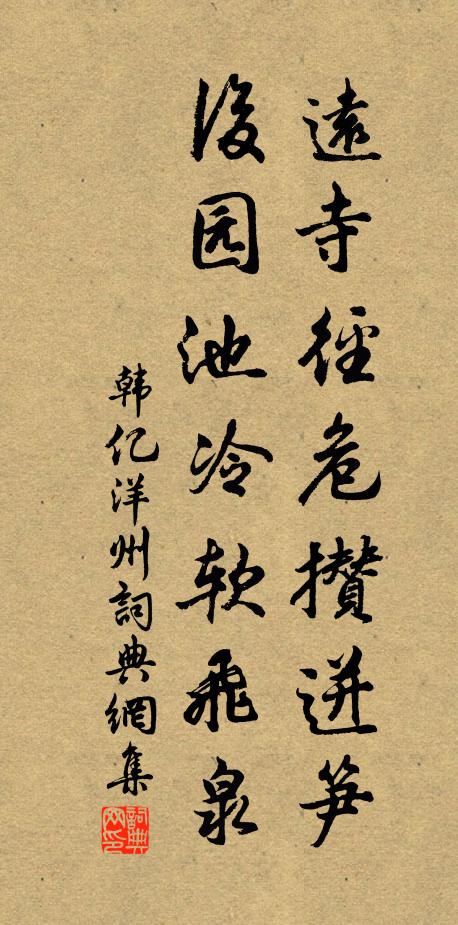 遠寺徑危攢迸笋
後园池冷软飛泉
韩亿洋州詞典網集
詞典网印